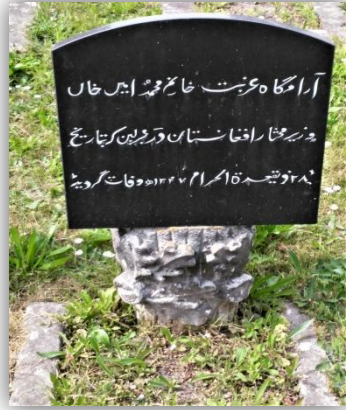 آرامگاه غربت خانم محمد خاں
وزیر مختار افغانستان در برلین که بتاریخ
۲۸ ذیقعدة الحرام ه وفات گردید